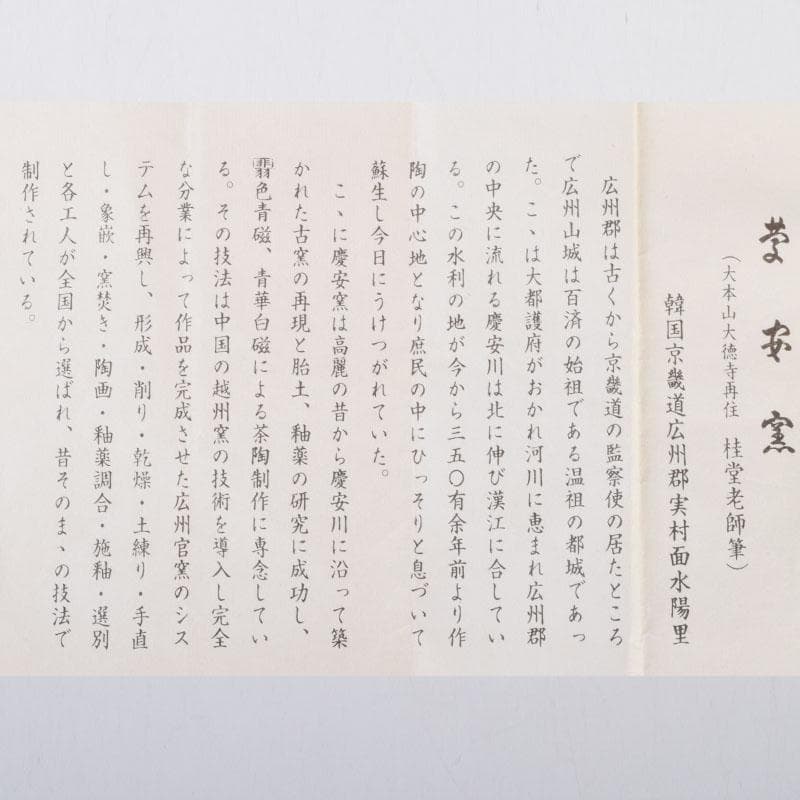 慶安窯
（大本山大徳寺再住　桂堂老師筆）
韓国京畿道広州郡実村面水陽里
広州郡は古くから京畿道の監察使の居たところ
で広州山城は百済の始祖である温祖の都城であっ
た。こゝは大都護府がおかれ河川に恵まれ広州郡
の中央に流れる慶安川は北に伸び漢江に合してい
る。この水利の地が今から三五〇有余年前より作
陶の中心地となり庶民の中にひっそりと息づいて
蘇生し今日にうけつがれていた。
こゝに慶安窯は高麗の昔から慶安川に沿って築
かれた古窯の再現と胎土、釉薬の研究に成功し、
翡色青磁、青華白磁による茶陶制作に専念してい
る。その技法は中国の越州窯の技術を導入し完全
な分業によって作品を完成させた広州官窯のシス
テムを再興し、形成・削り・乾燥・土練り・手直
し・象嵌・窯焚き・陶画・釉薬調合・施釉・選別
と各工人が全国から選ばれ、昔そのまゝの技法で
制作されている。